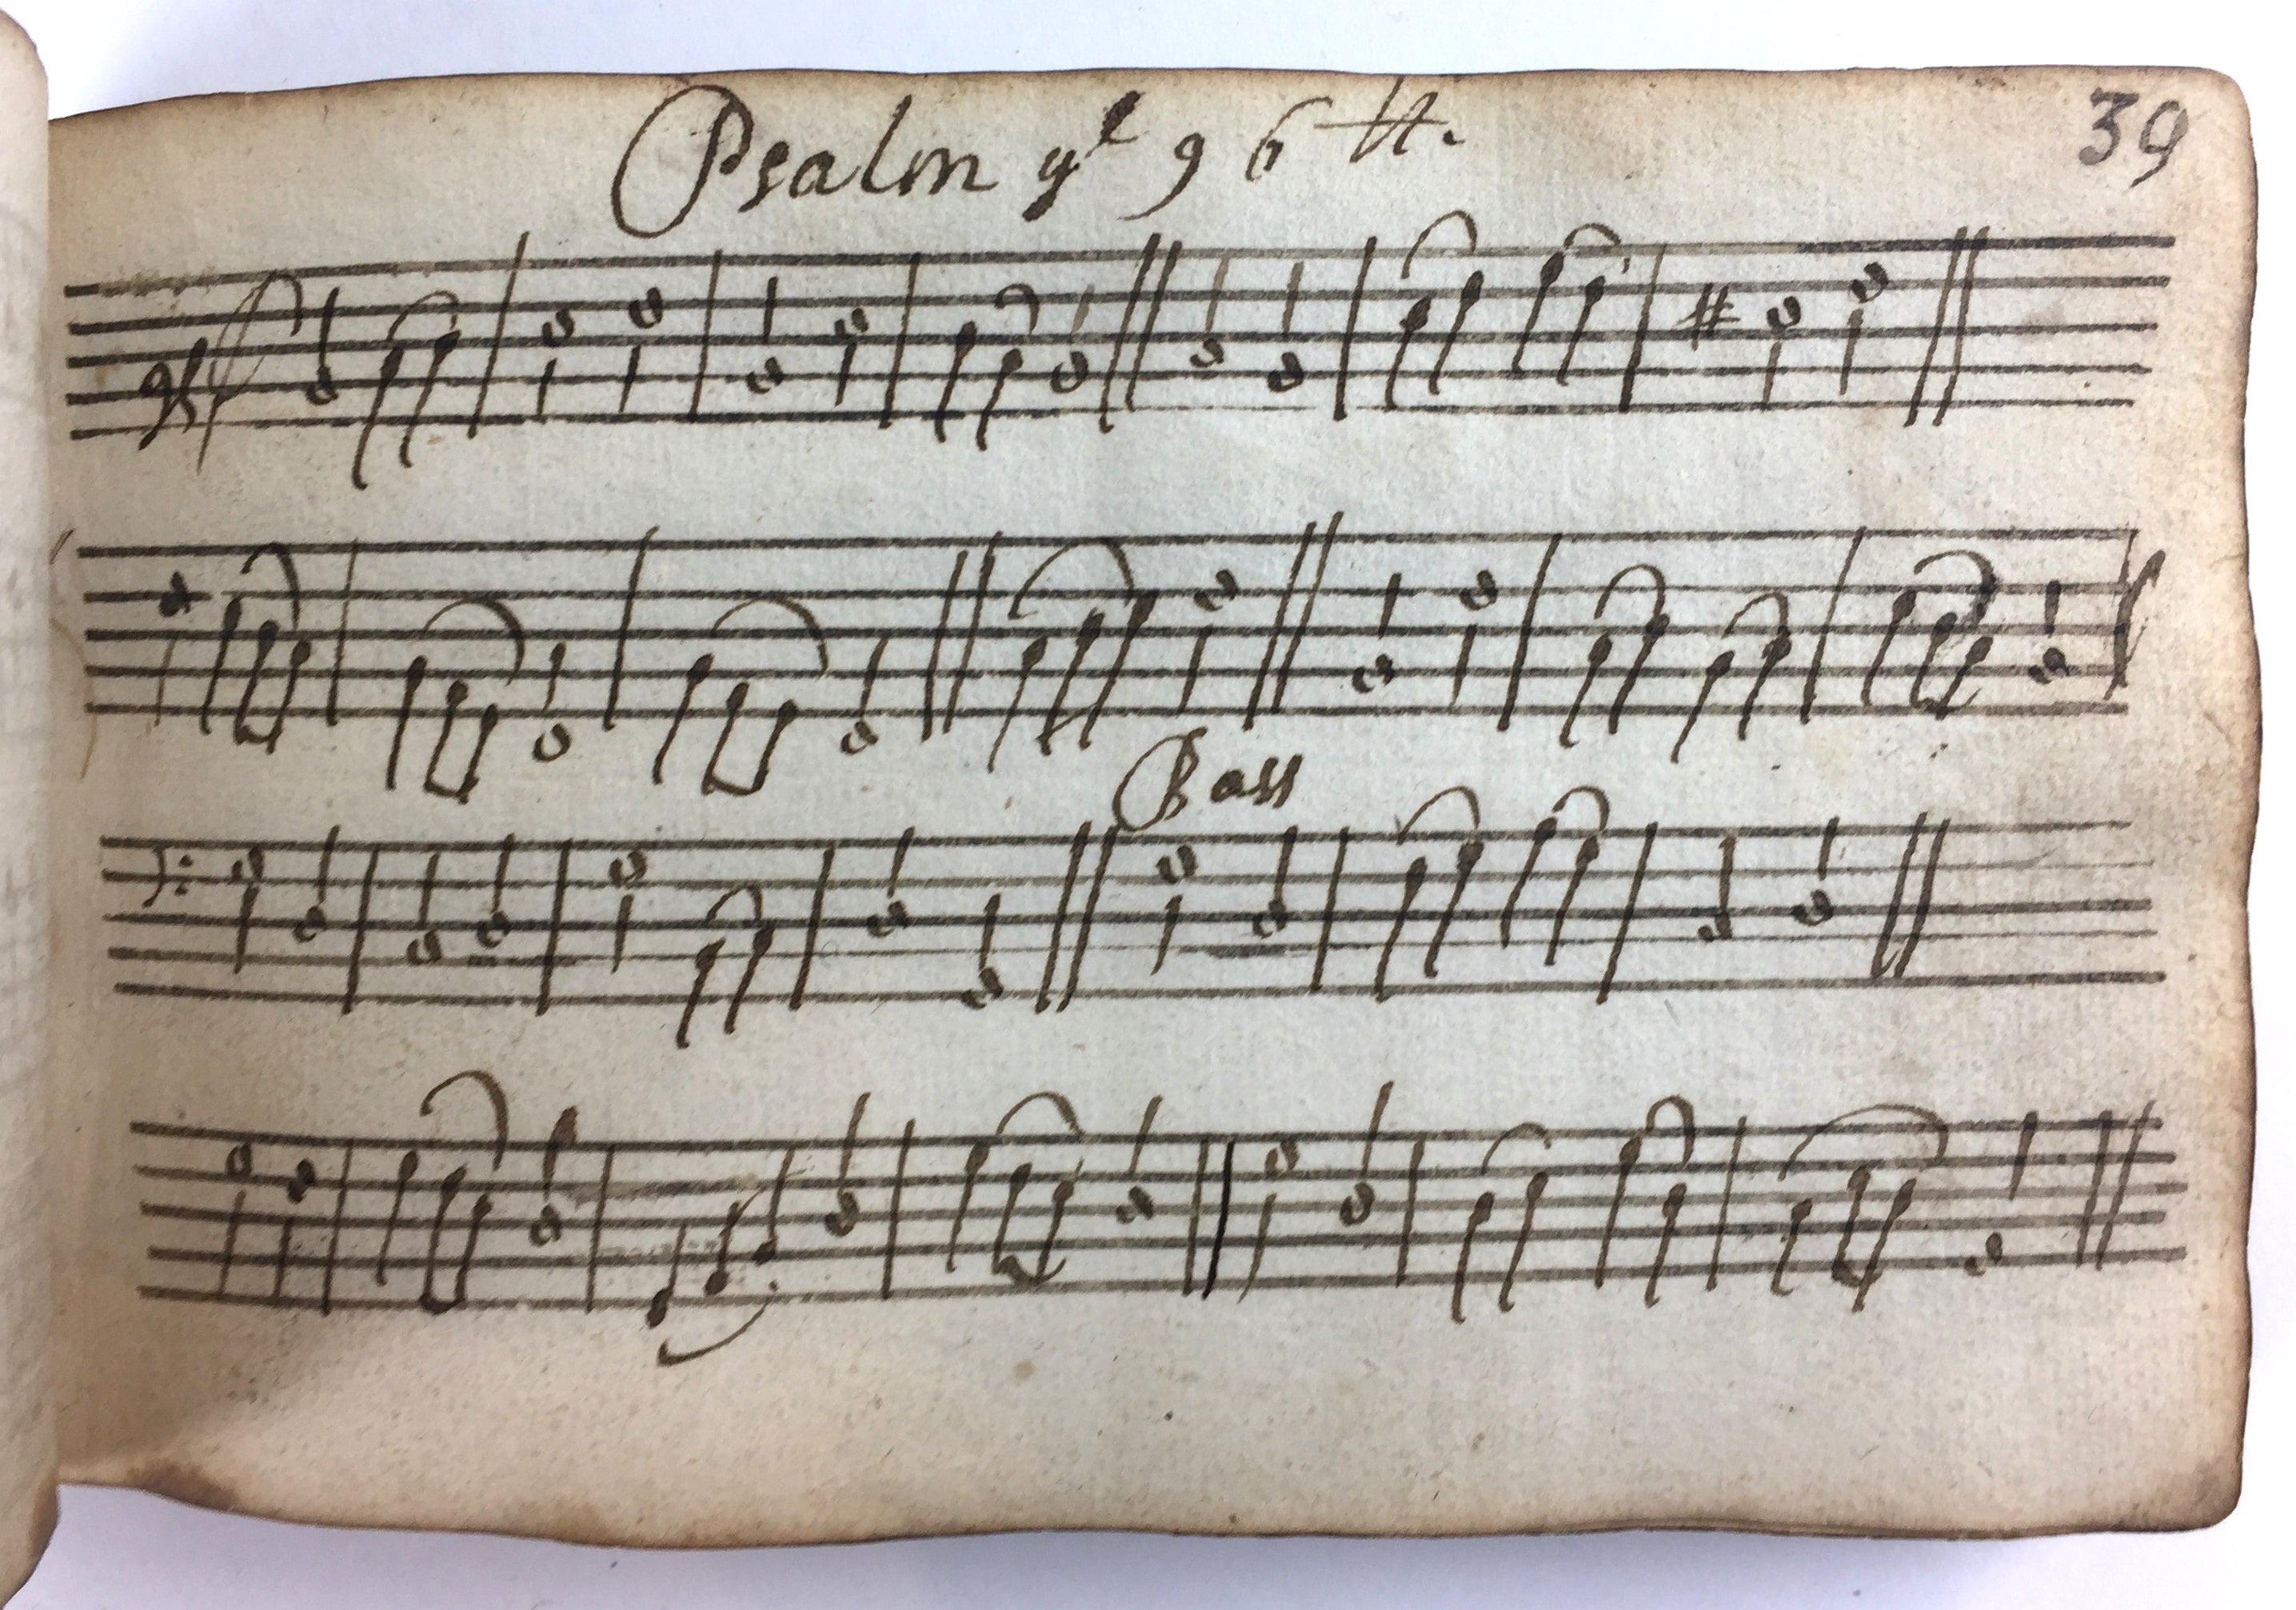 Psalm yͤ 96th.
39
Bass